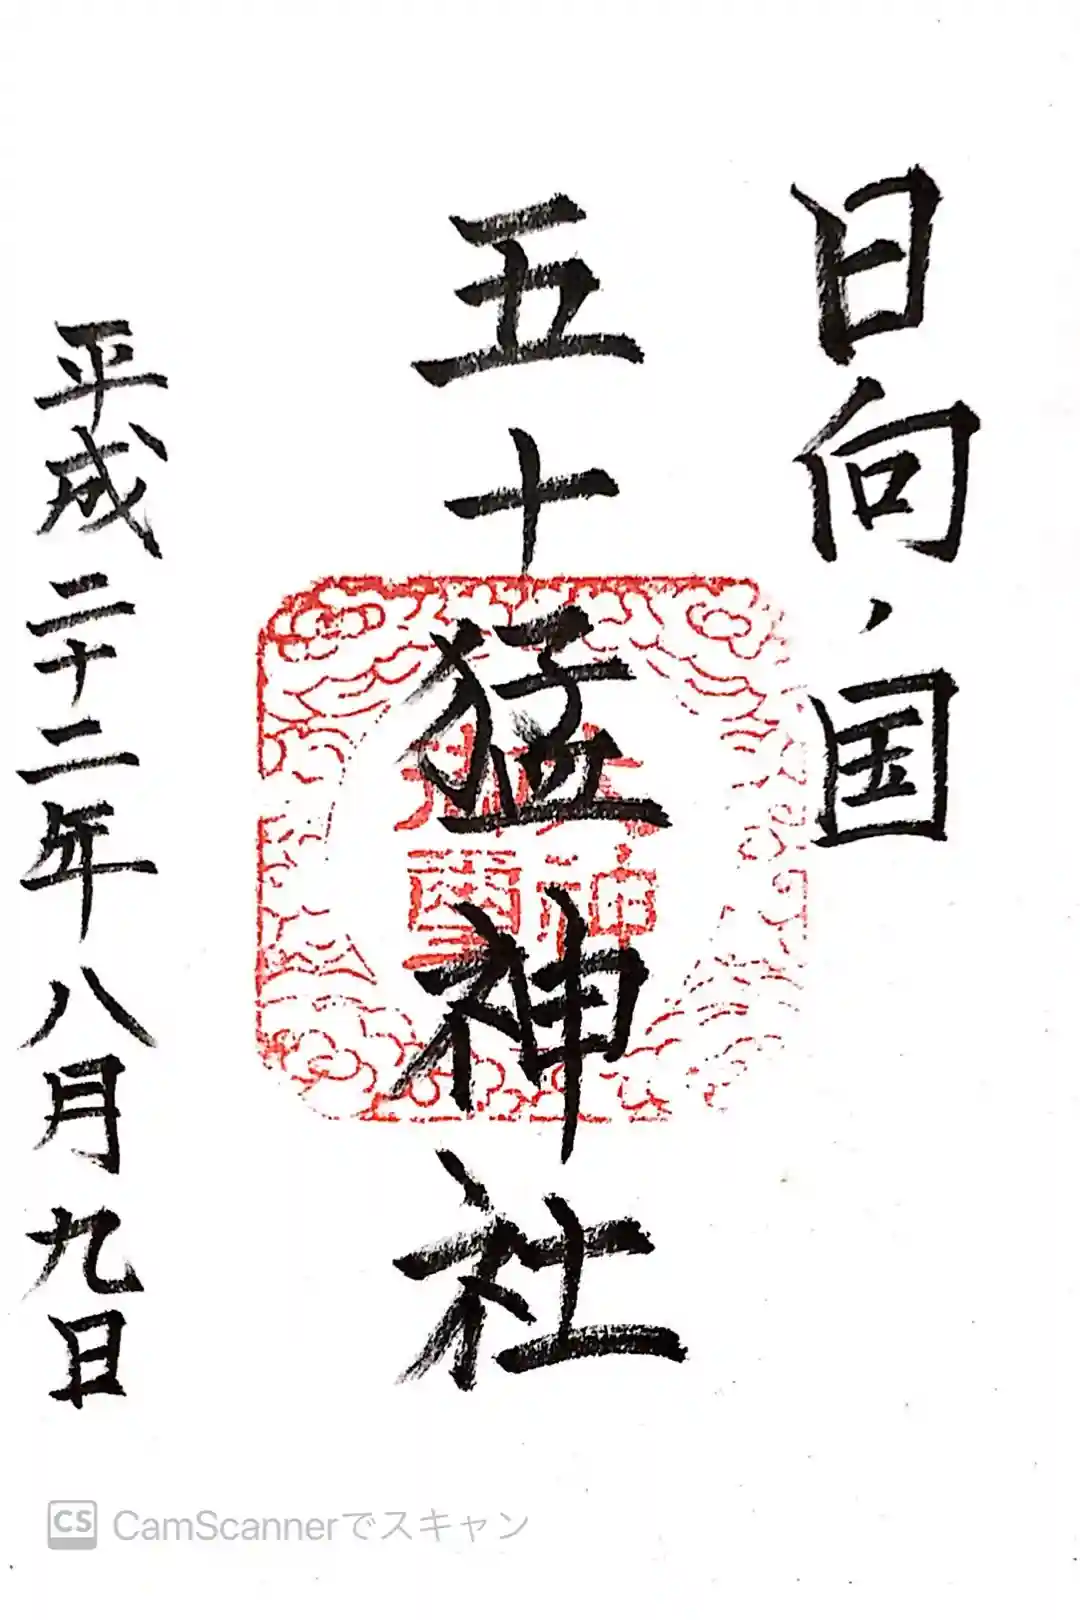 日向ノ国
五十猛神社
平成二十二年八月九日
CS CamScannerでスキャン